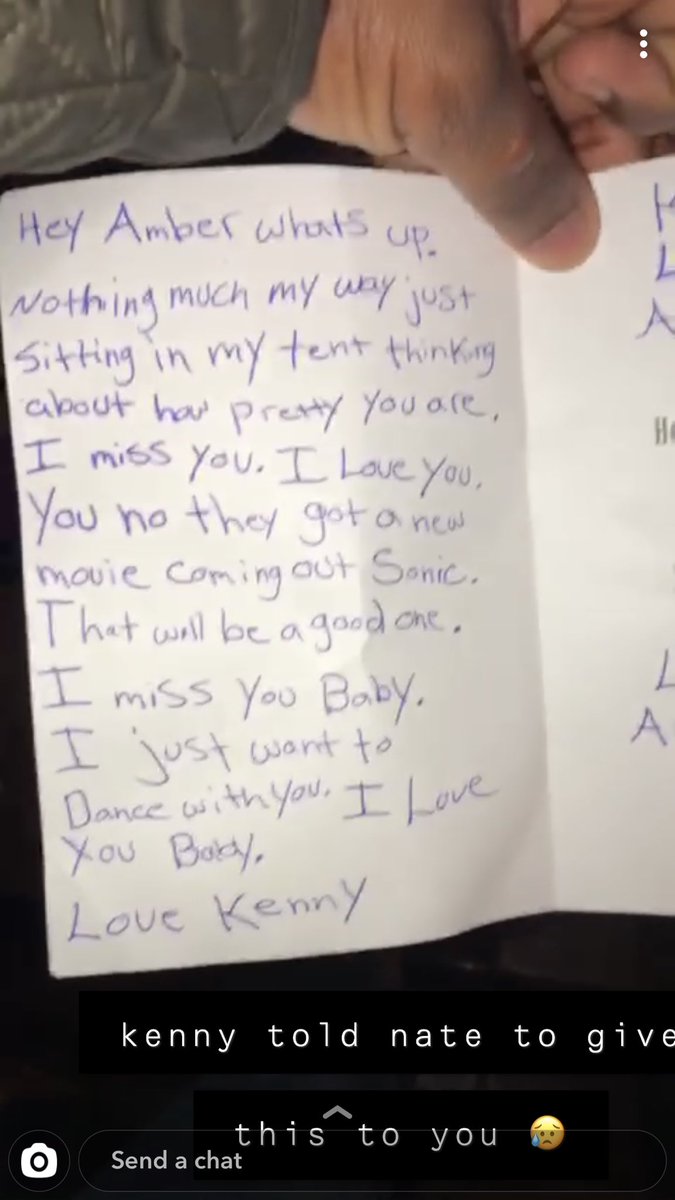 Hey Amber whats up.
Nothing much my way just
Sitting in my tent thinking
about how pretty you are.
I miss you. I Love you.
You no they got a new
movie coming out Sonic.
That will be a good one.
I miss you Baby.
I just want to
Dance with you. I Love
You Baby.
Love Kenny
K
L
A
He
L
A
kenny told nate to give
this to you 😥
Send a chat